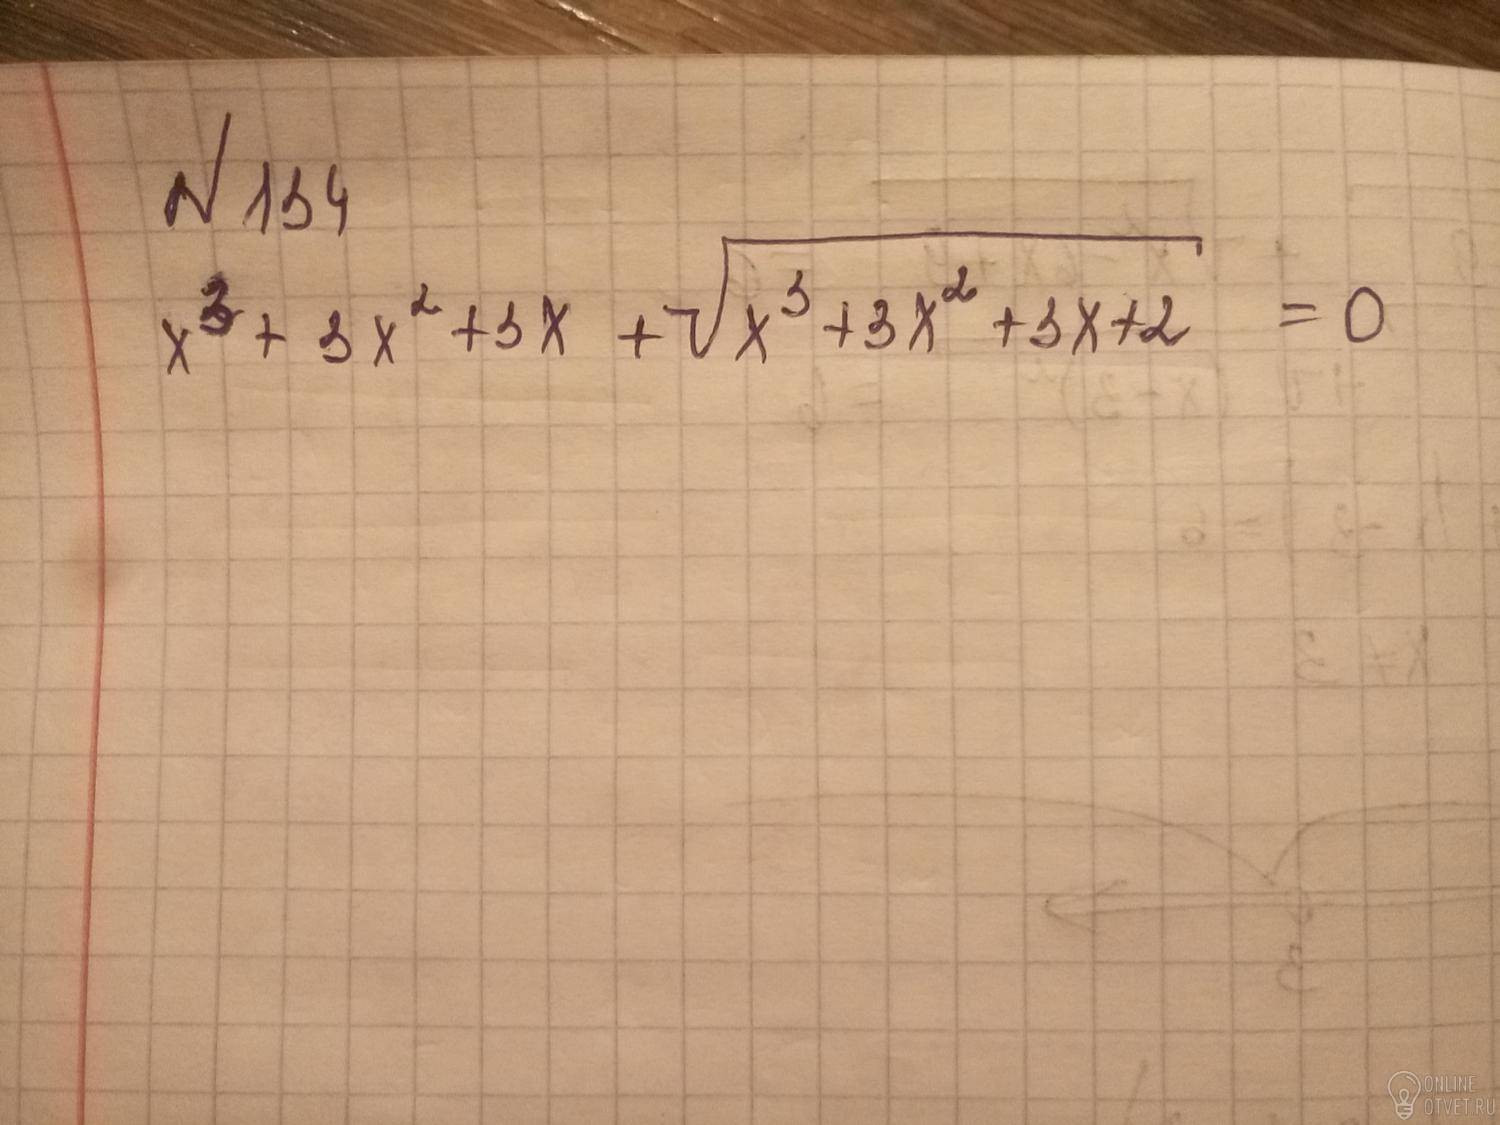 № 134
x³ + 3x² + 3x + √(x³ + 3x² + 3x + 2) = 0
ONLINE
OTVET.RU